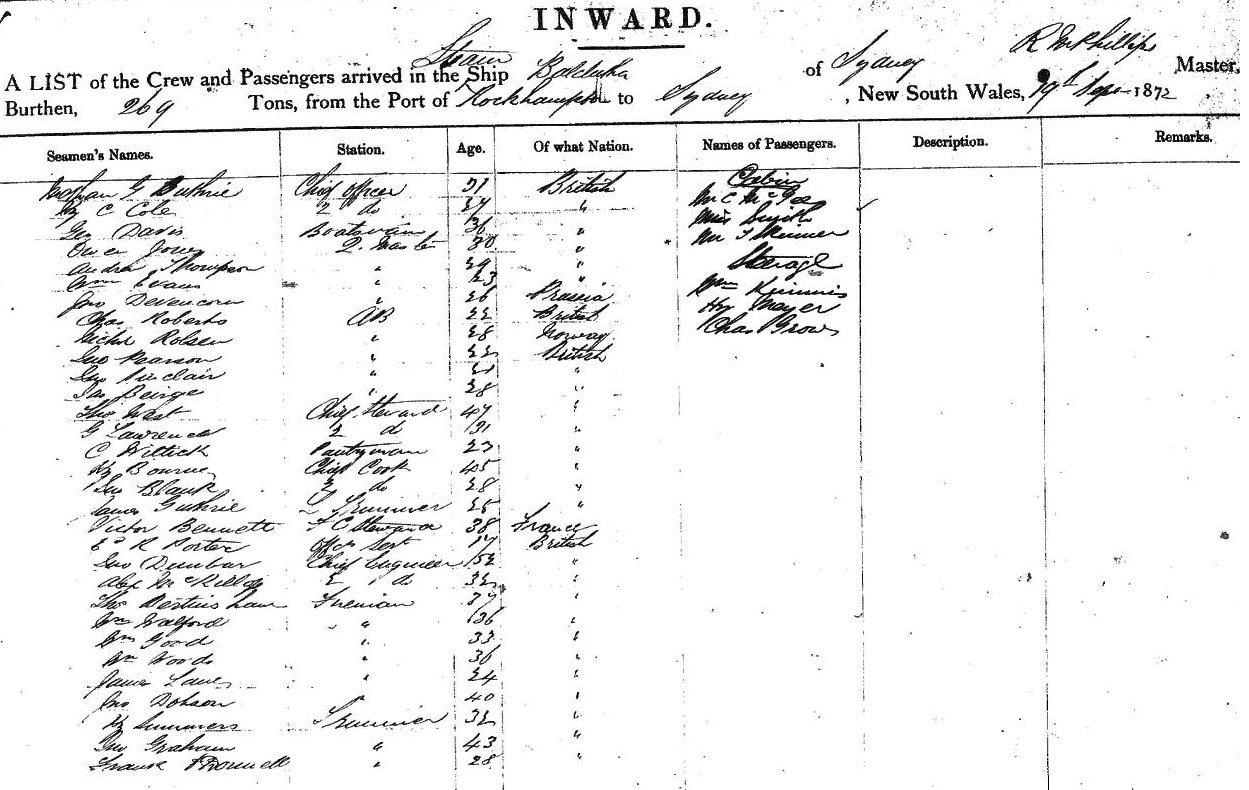 INWARD.
A LIST of the Crew and Passengers arrived in the Steam Ship of Sydney R McPhillips Master,
Burthen, 269 Tons, from the Port of Rockhampton to Sydney, New South Wales, 19th Sep 1872
Seamen's Names. Station. Age. Of what Nation. Names of Passengers. Description. Remarks.
G Guthrie Chief officer 31 British Cabin
Hy C Cole 2 do 27 " Mr C McGee
Geo Davis Boatswain 36 " Miss Smith
Owen Jones Q. Master 30 " Mr T Skinner
Andrew Thompson " 29 " Steerage
Wm Evans " 23 " Wm
Jno " 26 Prussia Hy Meyer
Chas Roberts AB 22 British Chas Grows
Rolsen " 28 Norway
Geo Pearson " 22 British
Jno Sinclair " "
Jas Beirge " 28 "
Thos West Chief Steward 47 "
G Lawrence 2 do 31 "
C Wittick Pantryman 23 "
Hy Bourne Chief Cook 45 "
Jno Blank 2 do 28 "
James Guthrie Trimmer 25 "
Victor Bennett F C Steward 38 France
Ed R Porter offrs Servt 17 British
Jno Dunbar Chief Engineer 52 "
Alex McKillop 2 " do 32 "
Thos Fireman 37 "
Wm Walford " 36 "
Wm Good " 33 "
Wm Woods " 36 "
James Lane " 24 "
Jno Dobson 40 "
Hy Summers Trimmer 32 "
Jno Graham " 43 "
Frank " 28 "